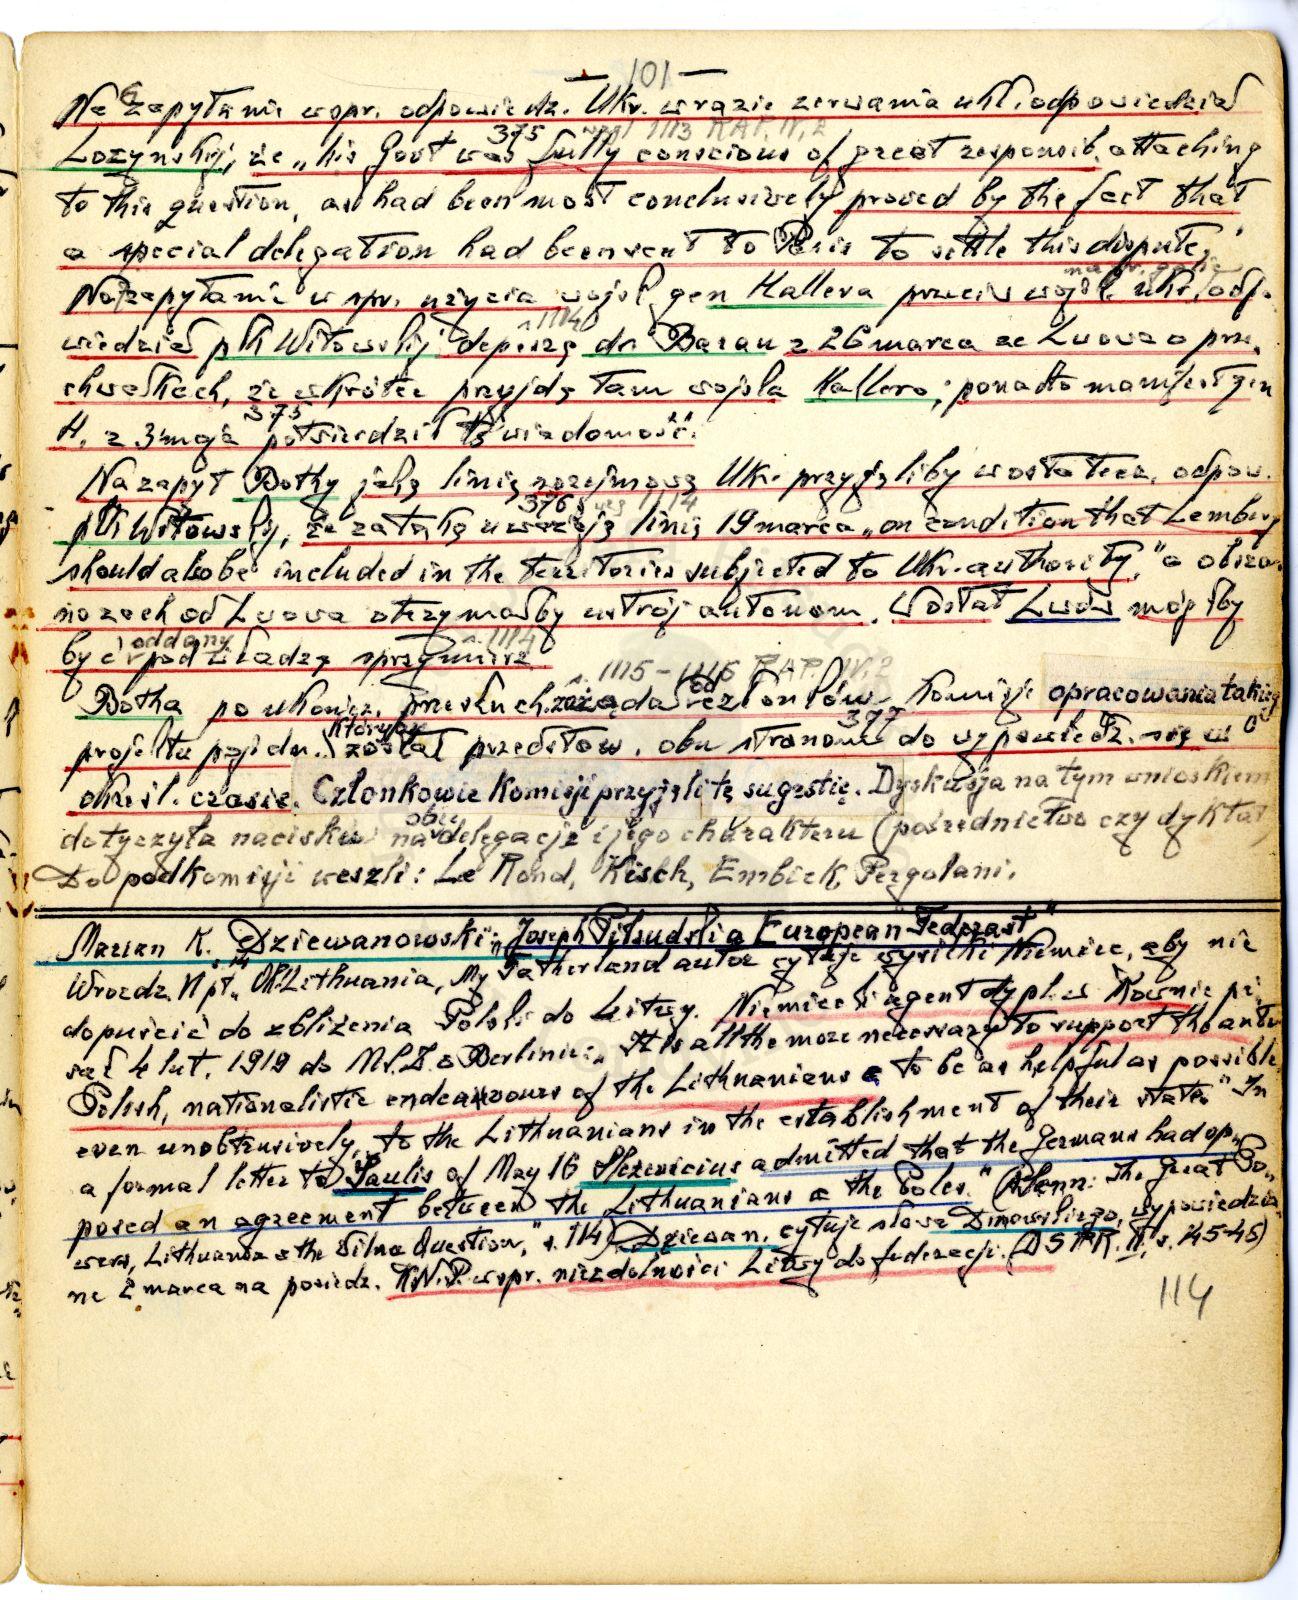 — 101 —
Na zapytanie w spr. odpowiedz. Ukr. w razie zerwania ukł. odpowiedział
375 1113 RAP. IV, 2
Łozynskij, że „his Govt was fully conscious of great responsib. attaching
to this question, as had been most conclusively proved by the fact that
a special delegation had been sent to Paris to settle this dispute."
Na zapytanie w spr. użycia wojsk gen Hallera przeciw wojsk. ukr. odp.
s. 1114
wiedział płk Witowskij depeszę do Bazau z 26 marca ze Lwowa o prze-
chwałkach, że wkrótce przyjdą tam wojska Hallera; ponadto manifest gen
375
H. z 3 maja potwierdził tę wiadomość.
Na zapyt Bothy jaką linię rozejmową Ukr. przyjęliby w ostatecz. odpow.
376 1114
płk Witowskij, że za taką uważają linię 19 marca „on condition that Lemberg
should also be included in the territories subjected to Ukr. authority," a obszar
na zach od Lwowa otrzymałby ustrój autonom. Został Lwów mógłby
być oddany pod władzę sprzymierz s. 1114
s. 1115-1116 RAP. IV, 2
Botha po ukończ. przesłuch. zażądał od członków Komisji opracowania takiego
377
projektu pojedn. któryby został przedstaw. obu stronom do wypowiedz. się w
określ. czasie. Członkowie Komisji przyjęli tę sugestię. Dyskusja nad tym wnioskiem
dotyczyła nacisku na obie delegacje i jego charakteru (pośrednictwo czy dyktat)
Do podkomisji weszli: Le Rond, Kisch, Embick, Pergolani.
Marian K. Dziewanowski: „Joseph Pilsudski a European Federalist"
W rozdz. IV pt. „Oh! Lithuania, My Fatherland autor cytuje wysiłki Niemiec, aby nie
dopuścić do zbliżenia Polski do Litwy. Niemiecki agent dypl. w Kownie pi-
sał 4 lut. 1919 do M.S.Z. o Berlinie: „It is all the more necessary to support the anti-
Polish, nationalistic endeavours of the Lithuanians & to be as helpful as possible,
even unobtrusively, to the Lithuanians in the establishment of their state." In
a formal letter to Saulis of May 16 Slezevicius admitted that the Germans had op-
posed an agreement between the Lithuanians & the Poles." (Senn: The Great Po-
wers, Lithuania & the Vilna Question," s. 114) Dziewan. cytuje słowa Dmowskiego, wypowiedzia-
ne 2 marca na posiedz. KNP. w spr. niezdolności Litwy do federacji. (DSPR. II, s. 45-46)
114